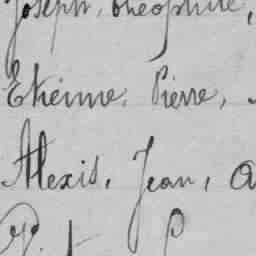 Joseph, théophile,
Etienne, Pierre,
Alexis, Jean, A